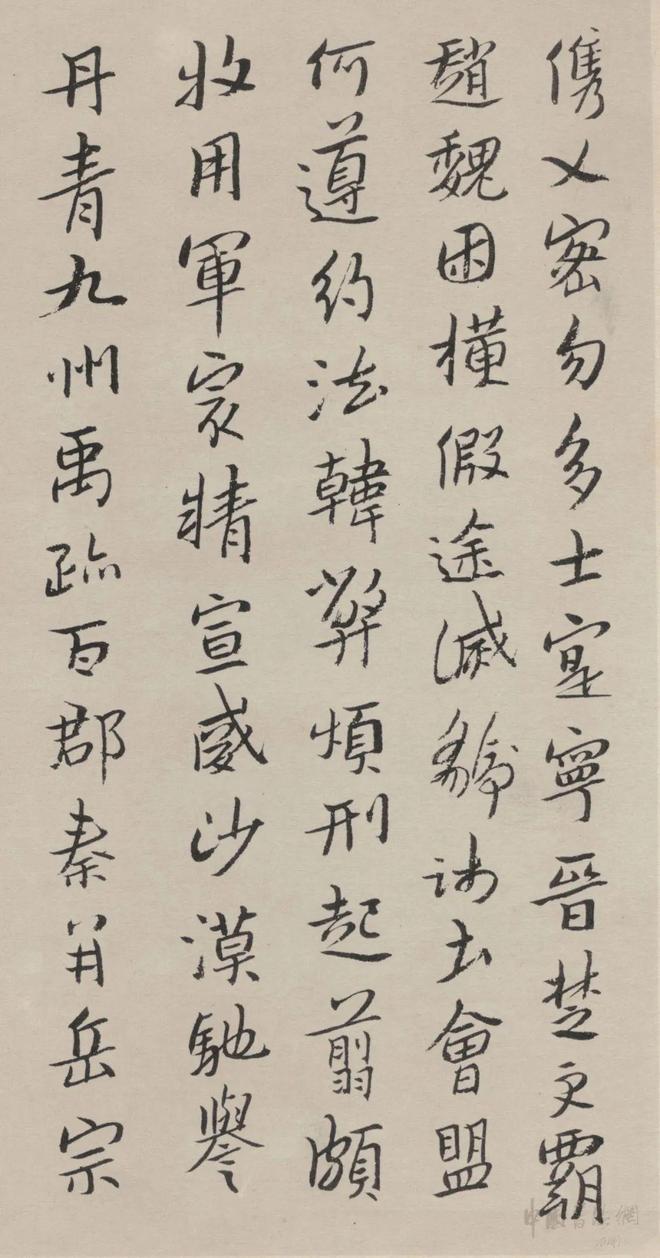 俊乂密勿多士寔寧晉楚更霸
趙魏困橫假途滅虢踐土會盟
何遵約法韓弊煩刑起翦頗
牧用軍最精宣威沙漠馳譽
丹青九州禹跡百郡秦并岳宗